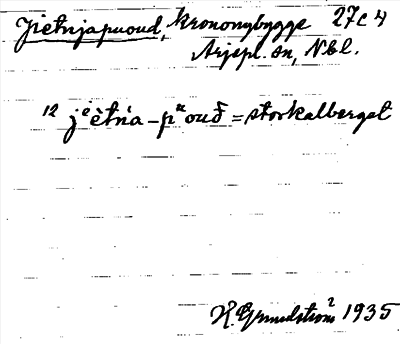 Jietnjapuoud, Kronomybygge 27c4
Arjepl. sn, Nbl.
12 jᵉètńa-pᵘouđ̄ = storkalberget
H. Grundström² 1935